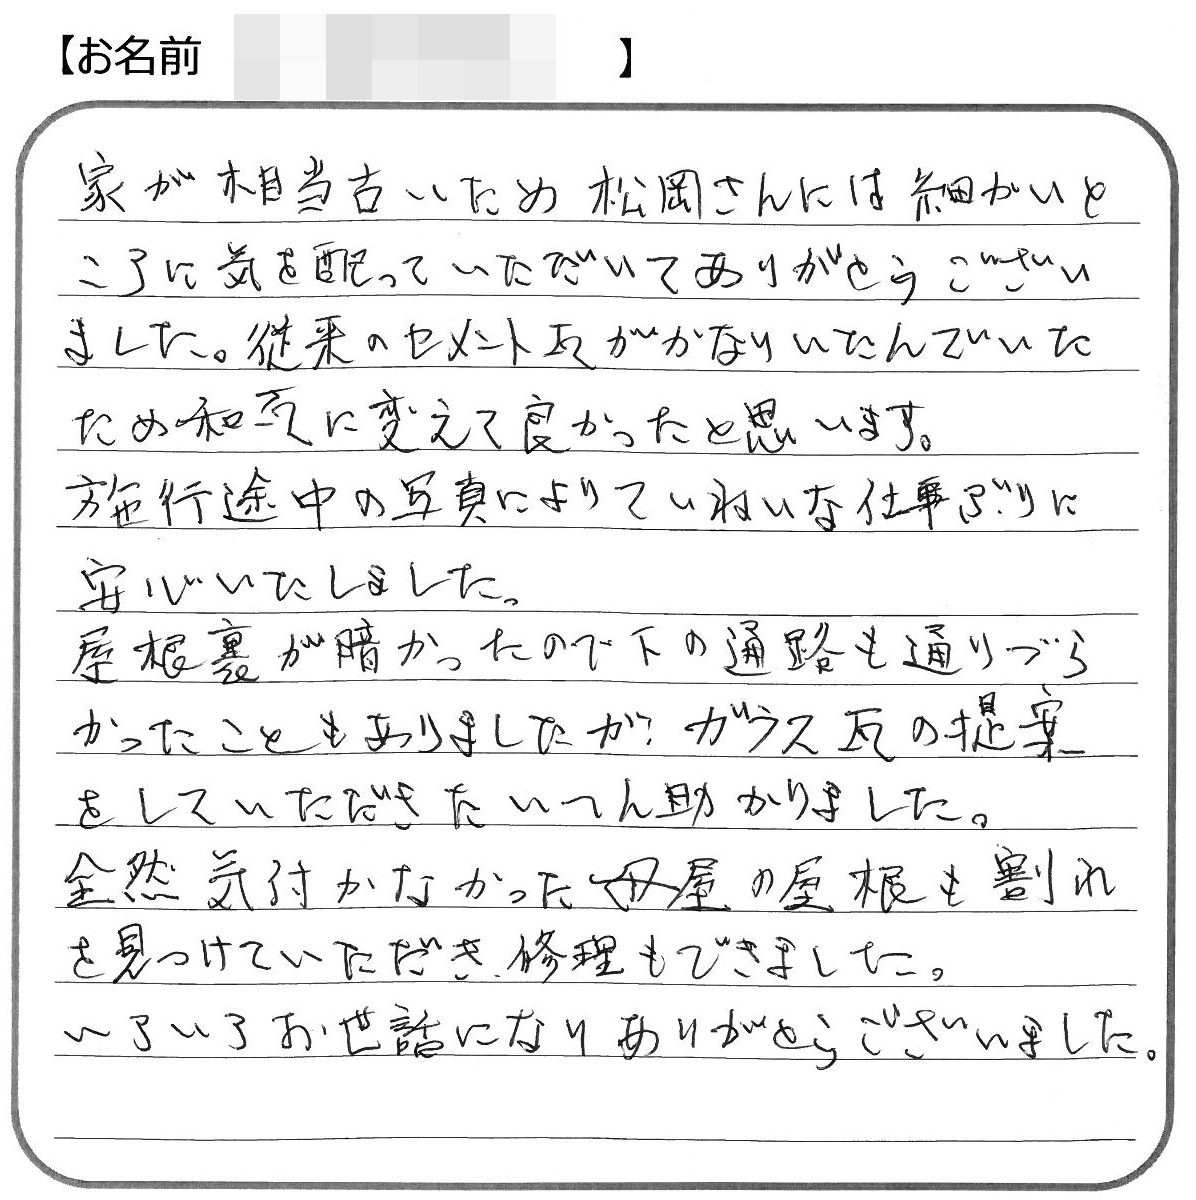 【お名前 】
家が相当古いため 松岡さんには細かいと
ころに気を配っていただいてありがとうござい
ました。従来のセメント瓦がかなりいたんでいた
ため和瓦に変えて良かったと思います。
施行途中の写真によりていねいな仕事ぶりに
安心いたしました。
屋根裏が暗かったので下の通路も通りづら
かったこともありましたが、ガラス瓦の提案
をしていただきたいへん助かりました。
全然気付かなかった母屋の屋根も割れ
を見つけていただき、修理もできました。
いろいろお世話になりありがとうございました。